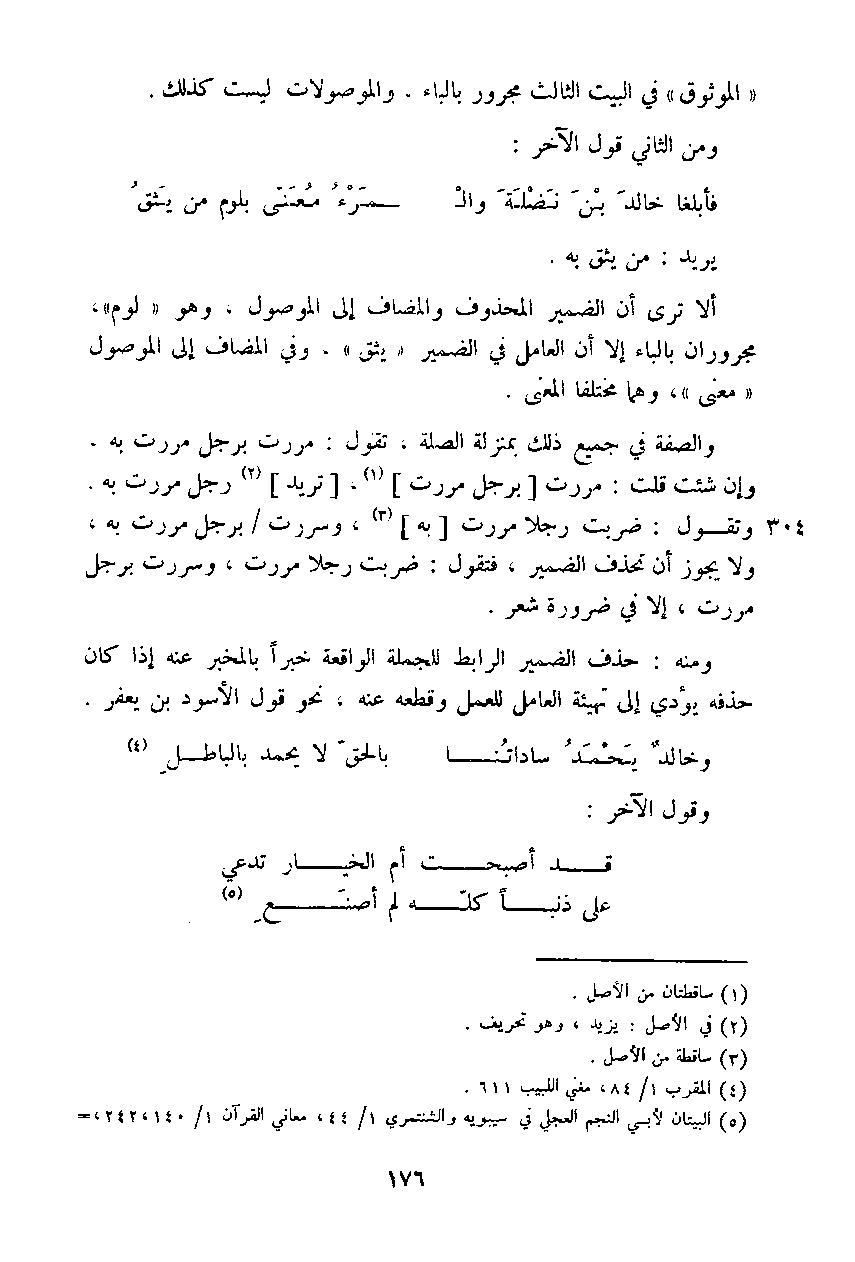 « الموثوق » في البيت الثالث مجرور بالباء . والموصولات ليست كذلك .
ومن الثاني قول الآخر :
فأبلغا خالدَ بْنَ نَضْلَةَ والـ ـمَرْءُ مُعَنَّى بلوم من يَثقُ
يريد : من يثق به .
ألا ترى أن الضمير المحذوف والمضاف إلى الموصول ، وهو « لوم»،
مجروران بالباء إلا أن العامل في الضمير « يثق » . وفي المضاف إلى الموصول
« معنى »، وهما مختلفا المعنى .
والصفة في جميع ذلك بمنزلة الصلة ، تقول : مررت برجل مررت به .
وإن شئت قلت : مررت [ برجل مررت ] (١) ، [ تريد ] (٢) رجل مررت به .
٣٠٤ وتقول : ضربت رجلا مررت [ به ] (٣) ، وسررت / برجل مررت به ،
ولا يجوز أن تحذف الضمير ، فتقول : ضربت رجلا مررت ، وسررت برجل
مررت ، إلا في ضرورة شعر .
ومنه : حذف الضمير الرابط للجملة الواقعة خبراً بالمخبر عنه إذا كان
حذفه يؤدي إلى تهيئة العامل للعمل وقطعه عنه ، نحو قول الأسود بن يعفر .
وخالدٌ يَحْمَدُ ساداتُنا بالحقّ لا يحمد بالباطلِ (٤)
وقول الآخر :
قد أصبحت أم الخيار تدعي
على ذنباً كلّه لم أصنَعِ (٥)
(١) ساقطتان من الأصل .
(٢) في الأصل : يزيد ، وهو تحريف .
(٣) ساقطة من الأصل .
(٤) المقرب ١/ ٨٤، مغني اللبيب ٦١١ .
(٥) البيتان لأبي النجم العجلي في سيبويه والشنتمري ١/ ٤٤، معاني القرآن ١/ ١٤٠،٢٤٢،=
١٧٦